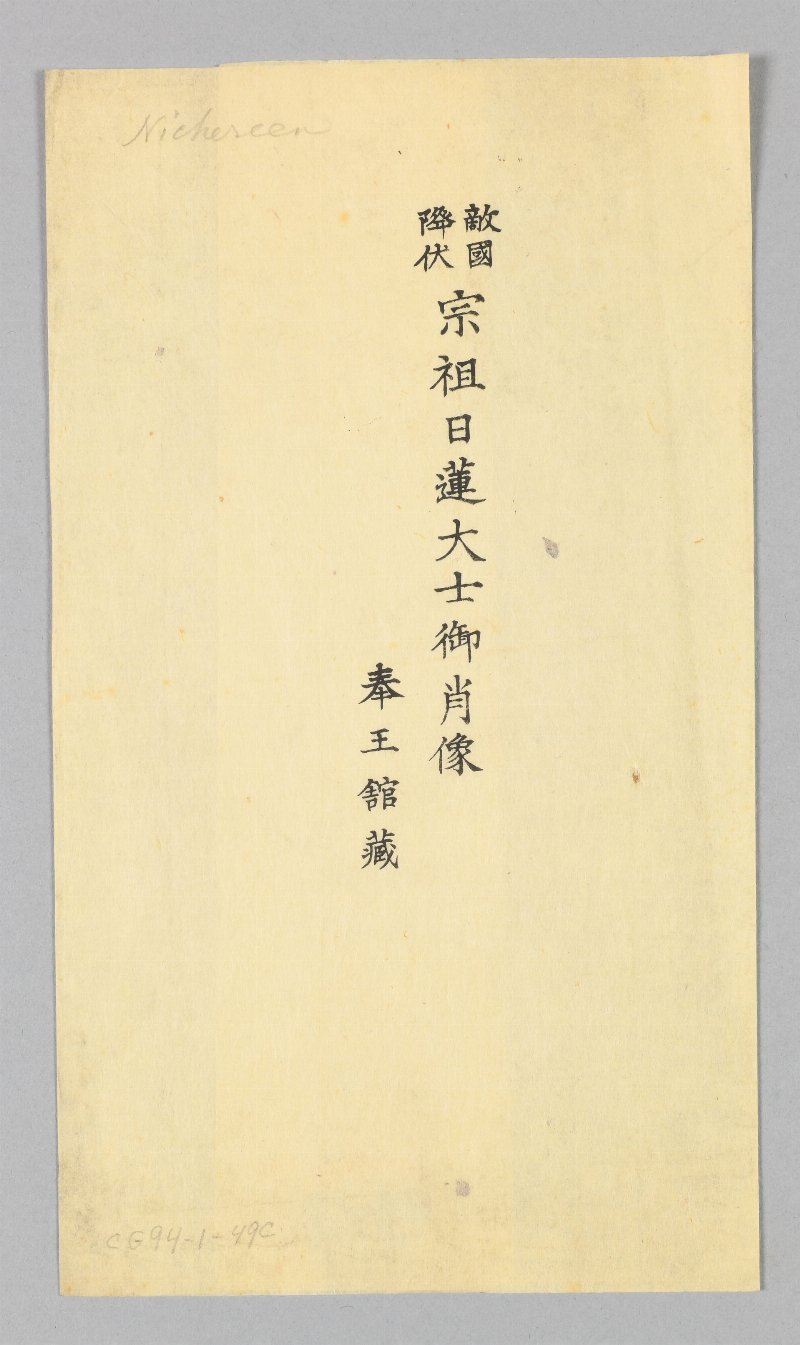 Nichereen
敵國
降伏
宗祖日蓮大士御肖像
奉王舘藏
CG94-1-49C